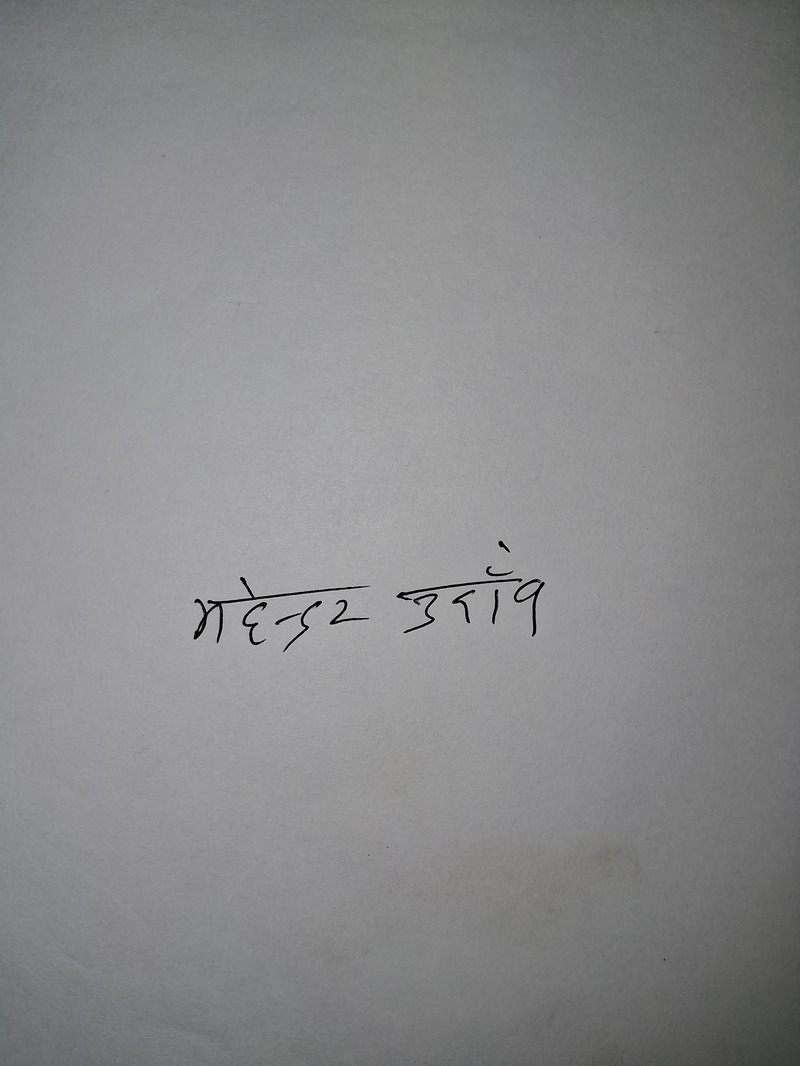 महेन्दर उराँव